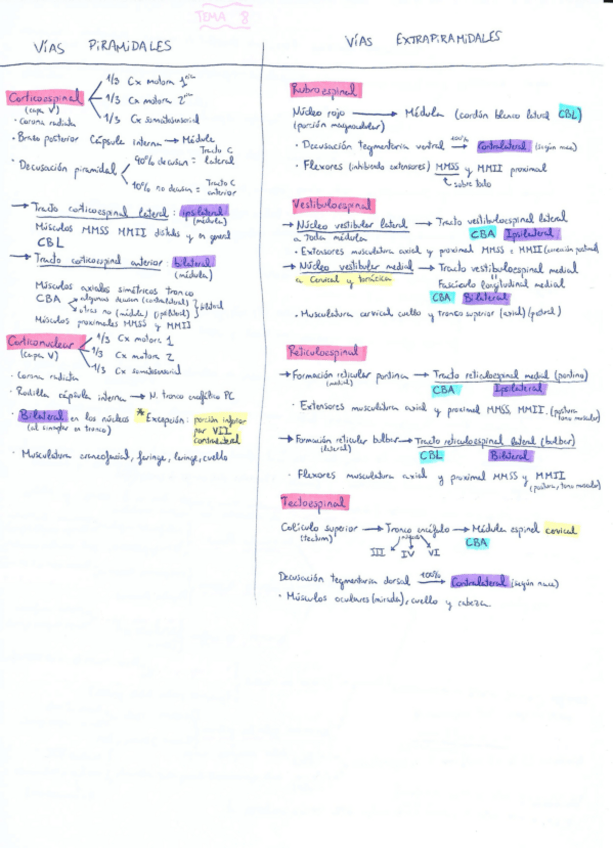 TEMA 8
VÍAS PIRAMIDALES
Corticoespinal
(capa V)
1/3 Cx motora 1aria
1/3 Cx motora 2aria
1/3 Cx somatosensorial
· Corona radiata
· Brazo posterior Cápsula interna → Médula
· Decusación piramidal
90% decusan = Tracto C lateral
10% no decusan = Tracto C anterior
→ Tracto corticoespinal lateral: ipsilateral
(médula)
Músculos MMSS MMII distales y en general
CBL
→ Tracto corticoespinal anterior bilateral
(médula)
Músculos axiales simétricos tronco
CBA
algunas decusan (contralateral)
otras no (médula) (ipsilateral)
bilateral
Músculos proximales MMSS y MMII
Corticonuclear
(capa V)
1/3 Cx motora 1
1/3 Cx motora 2
1/3 Cx somatosensorial
· Corona radiata
· Rodilla cápsula interna → N. tronco encefálico PC
· Bilateral en los núcleos
(al sinaptar en tronco)
* Excepción: porción inferior
par VII
contralateral
· Musculatura craneofacial, faringe, laringe, cuello
VÍAS EXTRAPIRAMIDALES
Rubroespinal
Núcleo rojo → Médula (cordón blanco lateral CBL)
(porción magnocelular)
· Decusación tegmentaria ventral 100% → Contralateral (según nace)
· Flexores (inhibiendo extensores) MMSS y MMII proximal
sobre todo
Vestibuloespinal
→ Núcleo vestibular lateral → Tracto vestibuloespinal lateral
a toda médula
CBA Ipsilateral
· Extensores musculatura axial y proximal MMSS y MMII
→ Núcleo vestibular medial → Tracto vestibuloespinal medial
a Cervical y torácica
Fascículo longitudinal medial
CBA Bilateral
· Musculatura cervical cuello y tronco superior (axial)
Reticuloespinal
→ Formación reticular pontina → Tracto reticuloespinal medial (pontino)
(medial)
CBA Ipsilateral
· Extensores musculatura axial y proximal MMSS, MMII. (postura, tono muscular)
→ Formación reticular bulbar → Tracto reticuloespinal lateral (bulbar)
(lateral)
CBL Bilateral
· Flexores musculatura axial y proximal MMSS y MMII
(postura, tono muscular)
Tectoespinal
Colículo superior → Tronco encéfalo → Médula espinal cervical
(tectum)
CBA
III IV VI
Decusación tegmentaria dorsal 100% → Contralateral (según nace)
· Músculos oculares (mirada), cuello y cabeza.